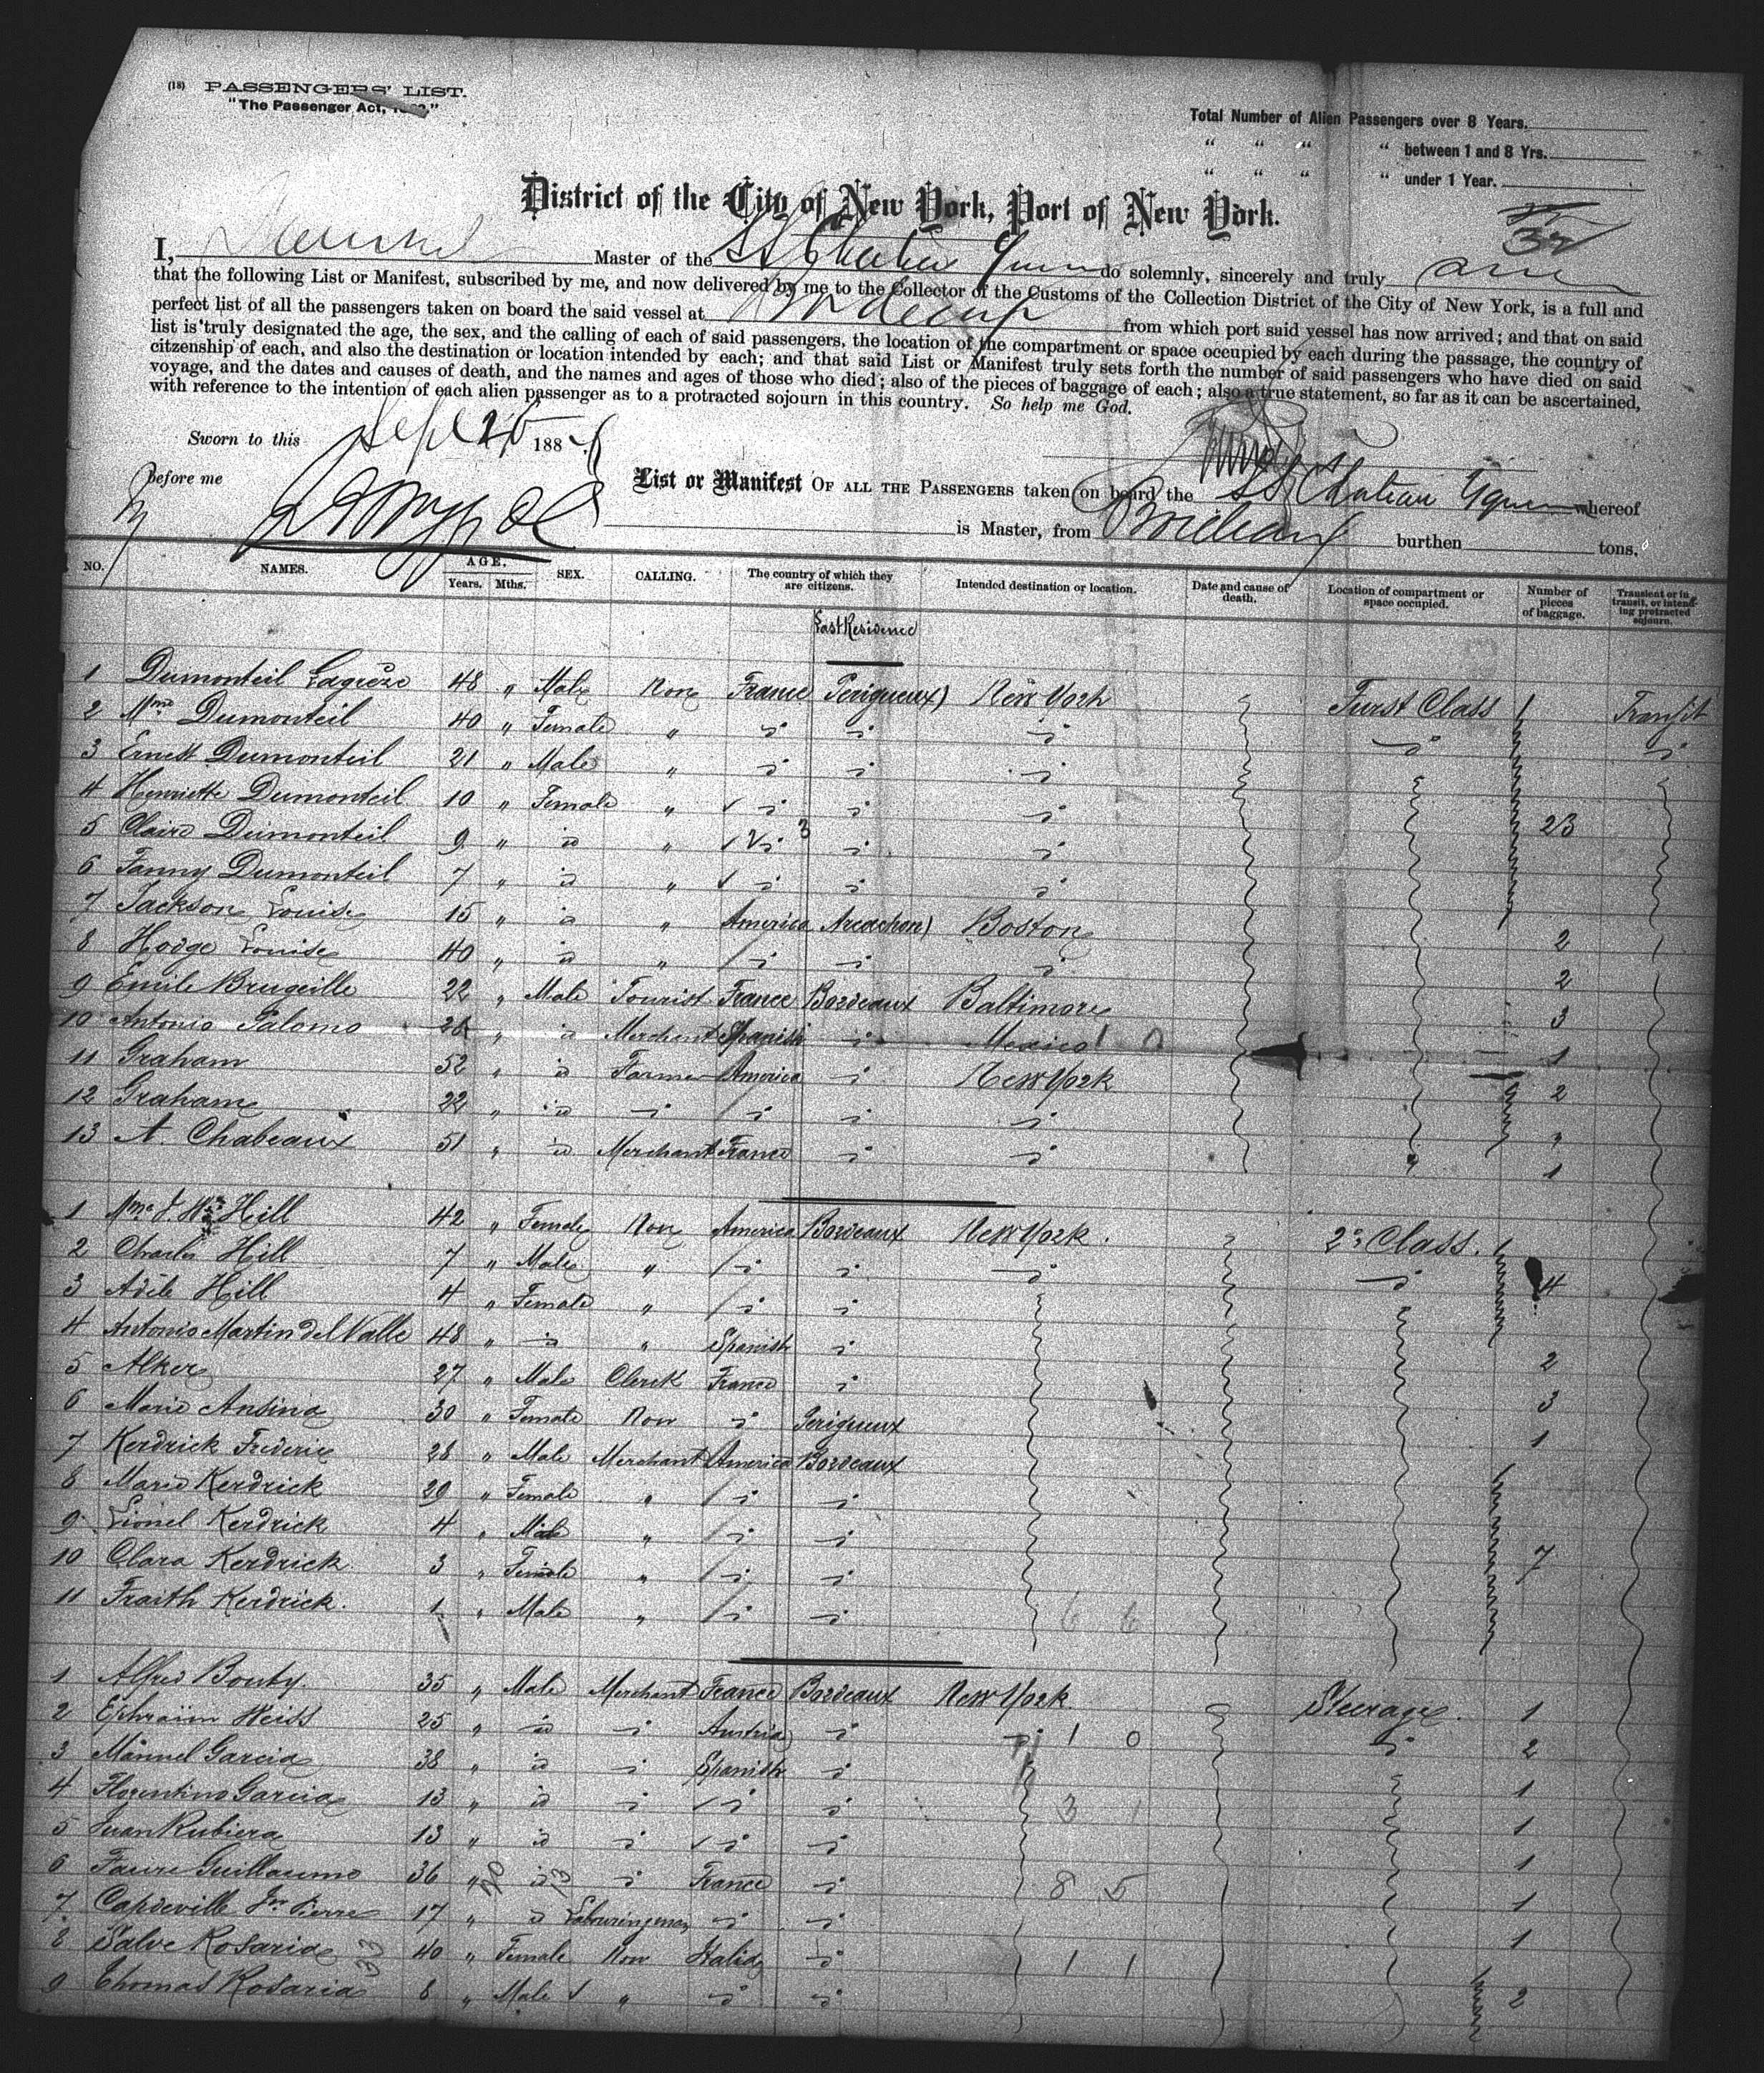 (18) PASSENGERS' LIST.
"The Passenger Act, 1882."
Total Number of Alien Passengers over 8 Years.
“ “ “ “ between 1 and 8 Yrs.
“ “ “ “ under 1 Year.
District of the City of New York, Port of New York.
32
I, Master of the SS Chateau Yquem do solemnly, sincerely and truly
that the following List or Manifest, subscribed by me, and now delivered by me to the Collector of the Customs of the Collection District of the City of New York, is a full and
perfect list of all the passengers taken on board the said vessel at Bordeaux from which port said vessel has now arrived; and that on said
list is truly designated the age, the sex, and the calling of each of said passengers, the location of the compartment or space occupied by each during the passage, the country of
citzenship of each, and also the destination or location intended by each; and that said List or Manifest truly sets forth the number of said passengers who have died on said
voyage, and the dates and causes of death, and the names and ages of those who died; also of the pieces of baggage of each; also a true statement, so far as it can be ascertained,
with reference to the intention of each alien passenger as to a protracted sojourn in this country. So help me God.
Sworn to this Sept 26 188
Before me
List or Manifest OF ALL THE PASSENGERS taken on board the SS Chateau Yquem whereof
is Master, from Bordeaux burthen tons.
NO. NAMES. AGE. Years. Mths. SEX. CALLING. The country of which they are citizens. Intended destination or location. Date and cause of death. Location of compartment or space occupied. Number of pieces of baggage. Transient or in transit, or intending protracted sojourn.
Last Residence
1 Dumonteil Lagreze 48 " Male Non France Perigueux) New York First Class Transit
2 Mme Dumonteil 40 " Female " " " " " "
3 Ernest Dumonteil 21 " Male " " " "
4 Henriette Dumonteil 10 " Female " " " " 23
5 Claire Dumonteil 9 " id " " " "
6 Fanny Dumonteil 7 " id " " " "
7 Jackson Louise 15 " id " America Arcachon) Boston 2
8 Hodge Louise 40 " id " " " " 2
9 Emile Brugeille 22 " Male Tourist France Bordeaux Baltimore 3
10 Antonio Palomo 26 " id Merchant Spanish " Mexico 1 0 1
11 Graham 52 " id Farmer America " New York 2
12 Graham 22 " id " " " " "
13 A. Chabeaux 51 " id Merchant France " " 1
1 Mme J. Wm Hill 42 " Female Non America Bordeaux New York. 2d Class.
2 Charles Hill 7 " Male " " " " " 4
3 Adèle Hill 4 " Female " " "
4 Antonio Martin del Valle 48 " id " Spanish " 2
5 Alker 27 " Male Clerck France " 3
6 Marie Ansina 30 " Female Non " Perigueux 1
7 Kerdrick Frederic 28 " Male Merchant America Bordeaux
8 Marie Kerdrick 29 " Female " " "
9 Lionel Kerdrick 4 " Male " " "
10 Clara Kerdrick 3 " Female " " " 7
11 Fraith Kerdrick. 1 " Male " " " 6 6
1 Alfred Bouty. 35 " Male Merchant France Bordeaux New York Steerage. 1
2 Ephraïm Weiss 25 " id " Austria " " 1 0 " 2
3 Manuel Garcia 38 " id " Spanish " 1
4 Florentino Garcia 13 " id " " " 3 1 1
5 Juan Rubiera 13 " id " " " 1
6 Faure Guillaume 36 " id " France " 8 5 1
7 Capdeville Jn Pierre 17 " id Labouringman " " 1
8 Salve Rosaria 40 " Female Non Italia " 1 1
9 Thomas Rosaria 8 " Male " " " 2